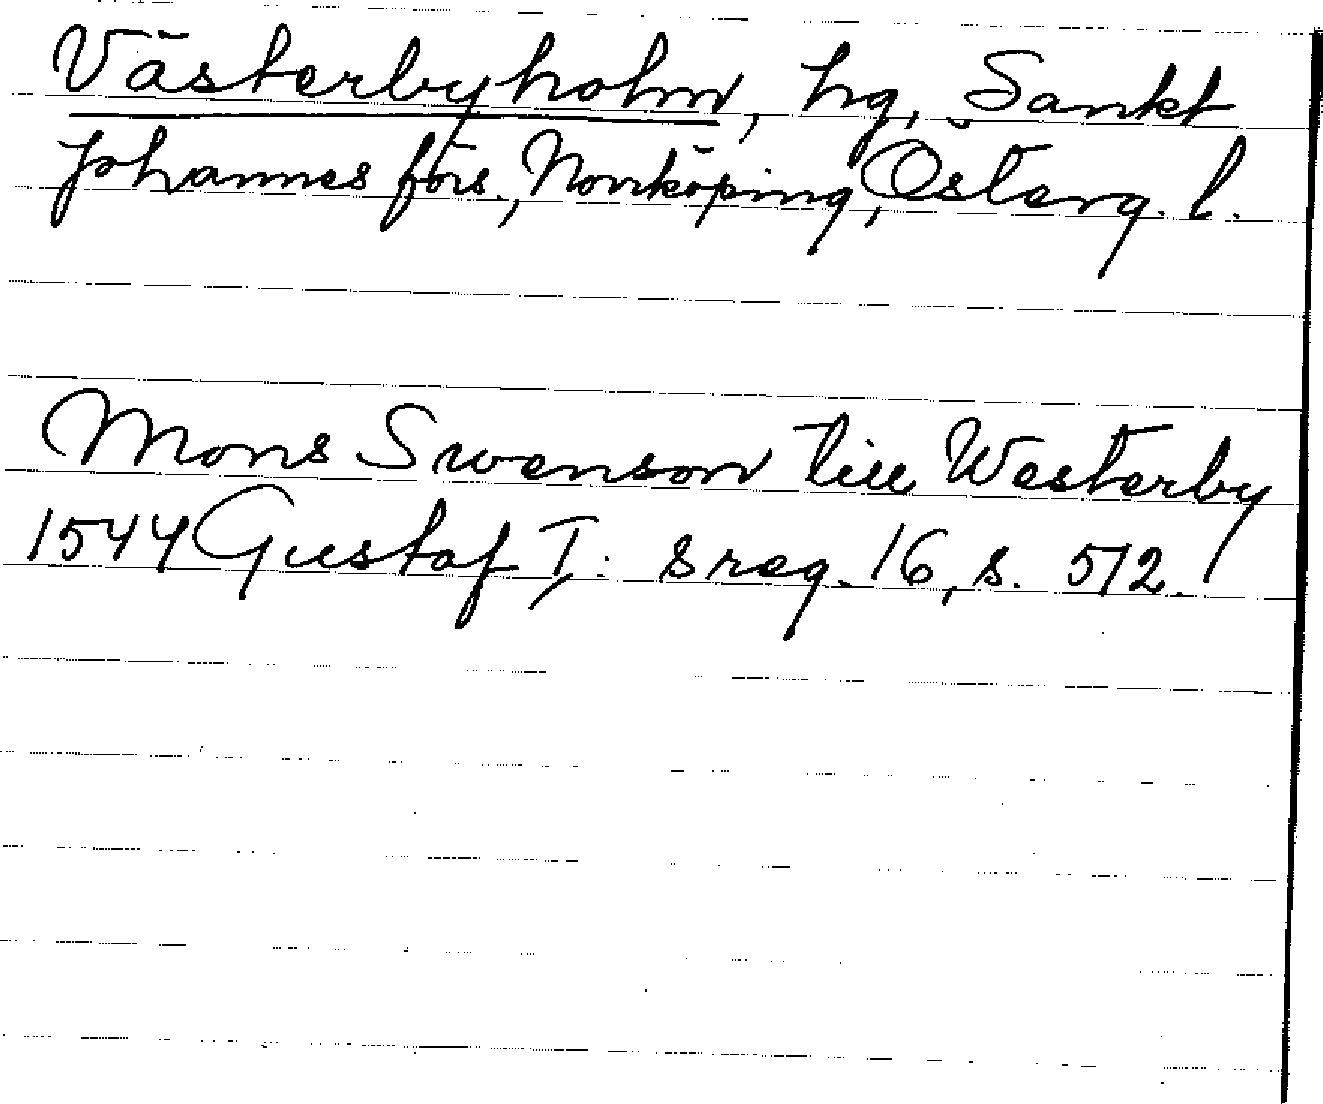 Västerbyholm, hg, Sankt
Johannes förs., Norrköping, Österg. l.
Mons Swenson till Westerby
1544 Gustaf I: s reg. 16, s. 572.